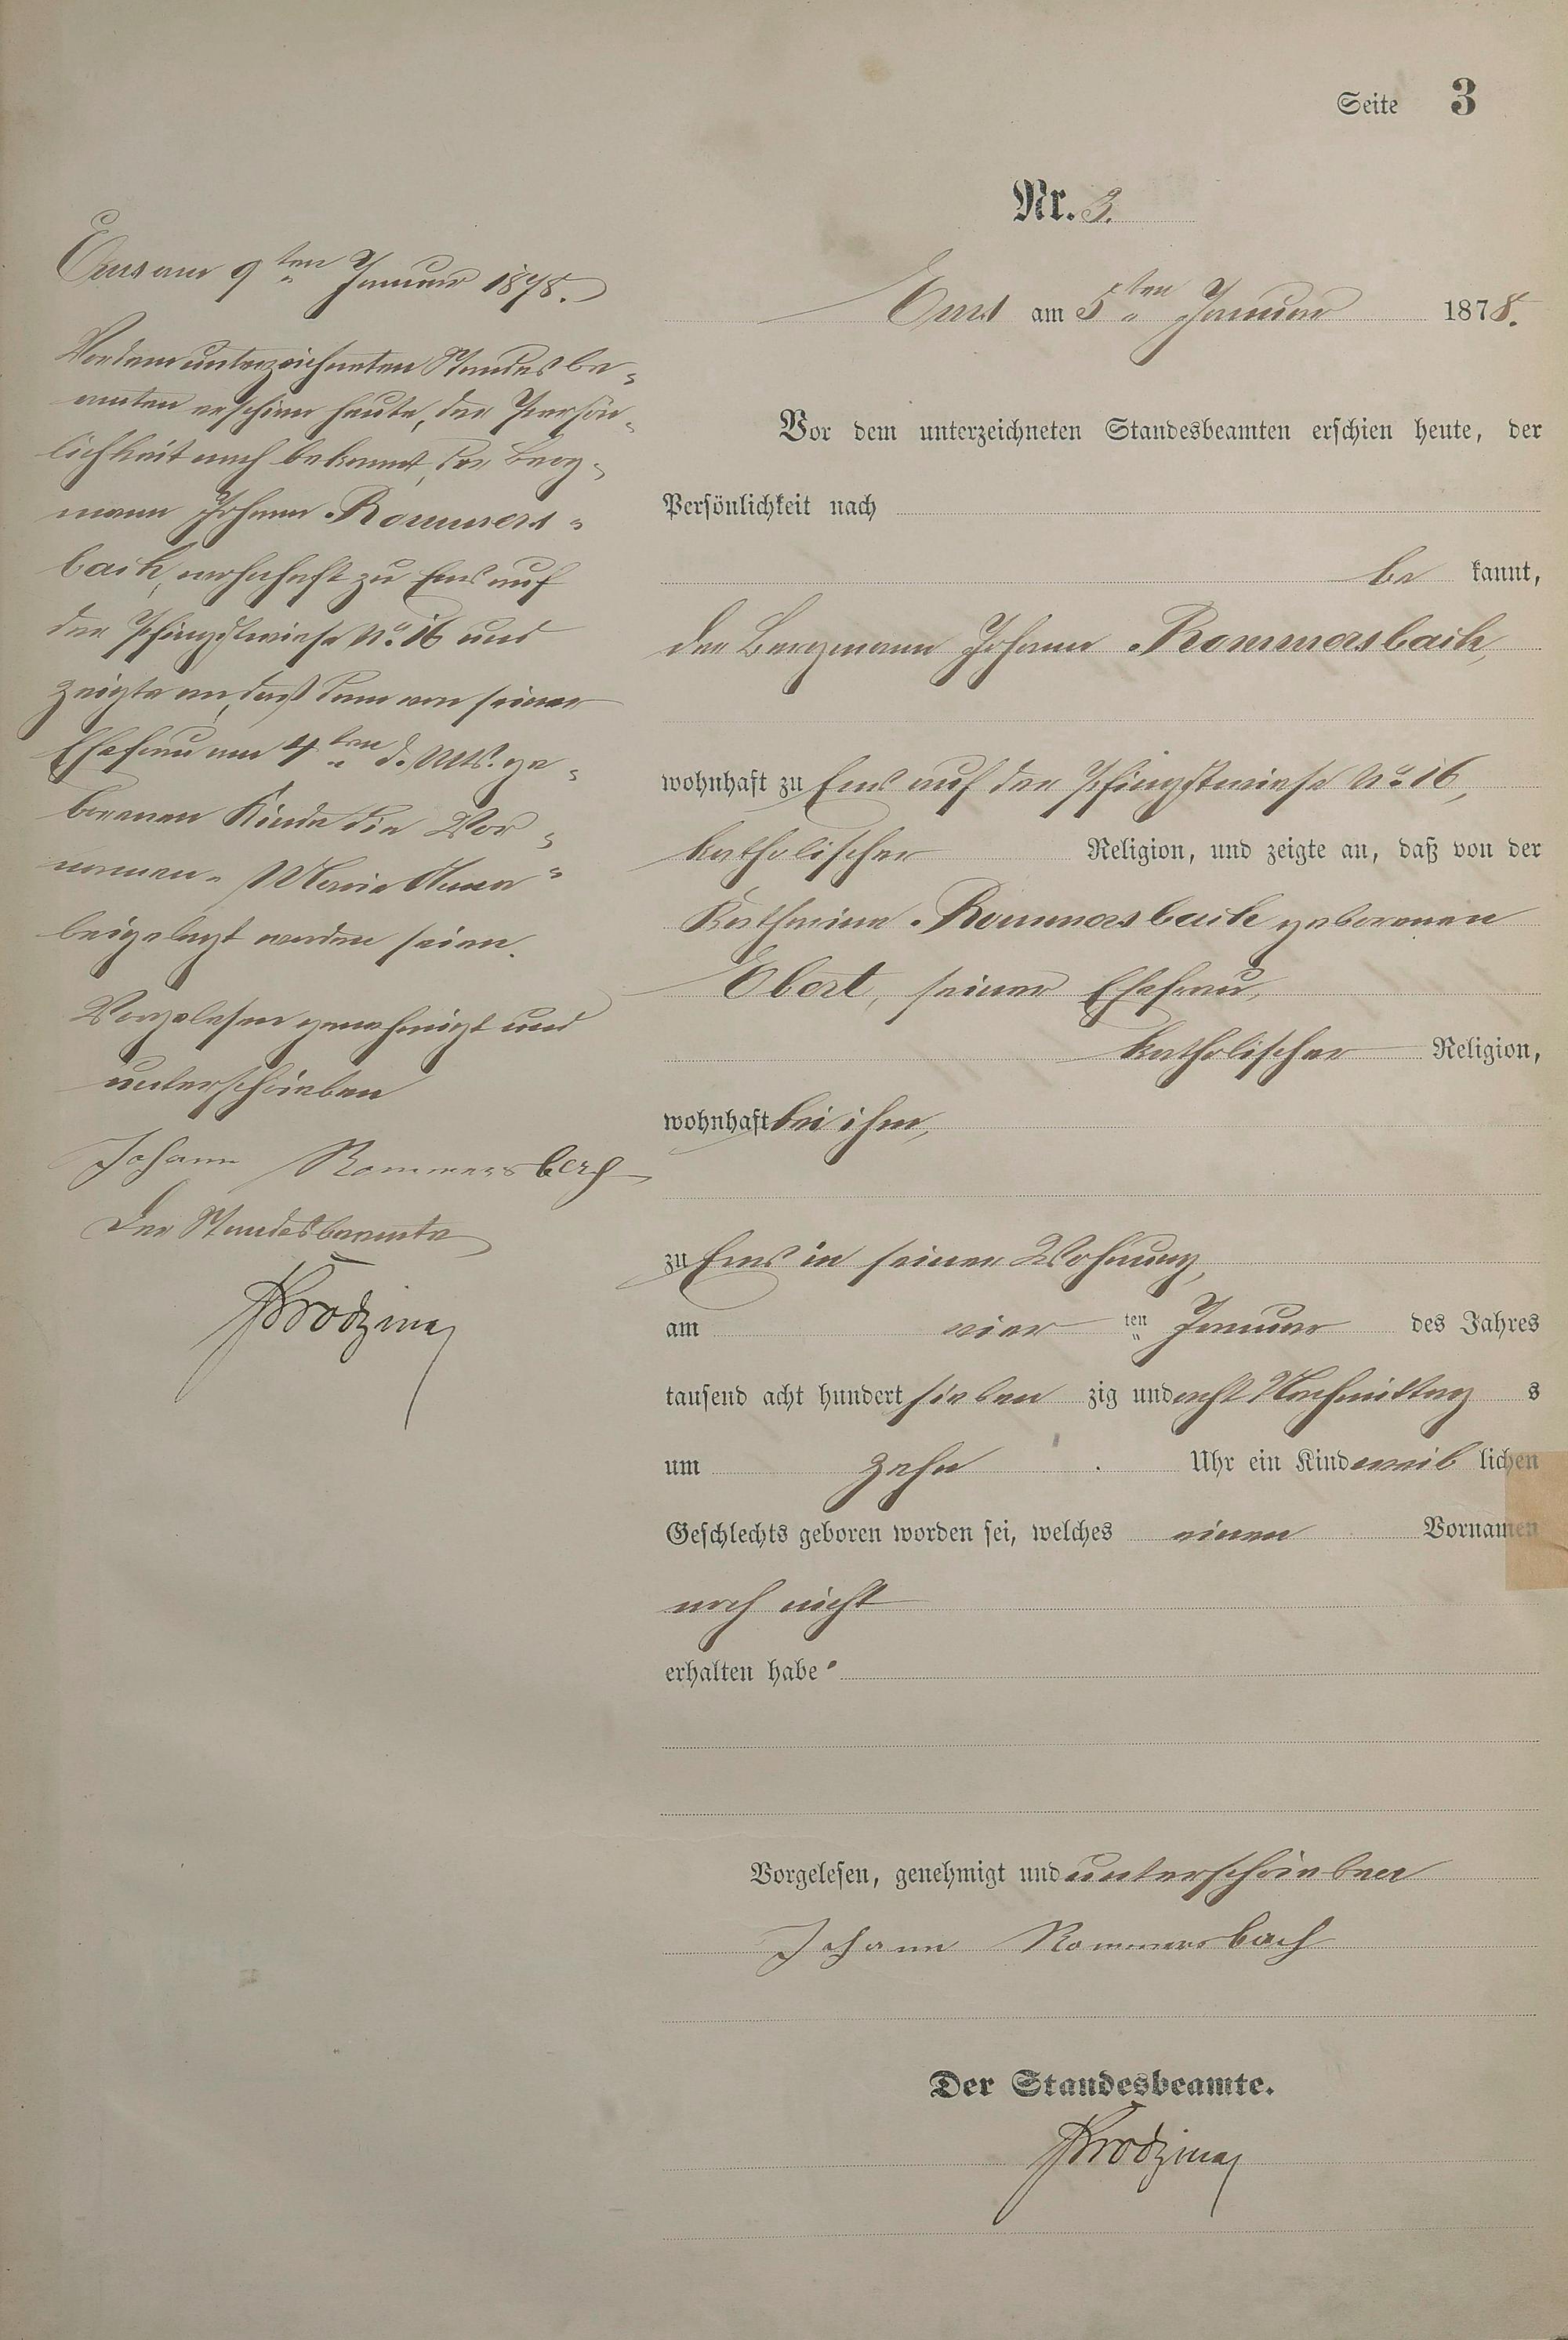 Seite 3
Nr. 3.
Ems am 5ten Januar 1878.
Vor dem unterzeichneten Standesbeamten erschien heute, der
Persönlichkeit nach
be kannt,
der Bergmann Johann Rommersbach,
wohnhaft zu Ems auf der Pfingstwiese No. 16,
katholischer Religion, und zeigte an, daß von der
Katharina Rommersbach geborenen
Ebert, seiner Ehefrau,
katholischer Religion,
wohnhaft bei ihm,
zu Ems in seiner Wohnung,
am vier ten Januar des Jahres
tausend acht hundert sieben zig und acht Nachmittag s
um zehn Uhr ein Kind weib lichen
Geschlechts geboren worden sei, welches einen Vornamen
noch nicht
erhalten habe.
Vorgelesen, genehmigt und unterschrieben
Johann Rommersbach
Der Standesbeamte.
Ems am 9ten Januar 1878.
Vor dem unterzeichneten Standesbe=
amten erschien heute, der Persön=
lichkeit nach bekannt, der Berg=
mann Johann Rommers=
bach, wohnhaft zu Ems auf
der Pfingstwiese No. 16 und
zeigte an, daß dem von seiner
Ehefrau am 4ten d. Mts. ge=
borenen Kinde die Vor=
namen „Maria Anna"
beigelegt worden seien.
Vorgelesen genehmigt und
unterschrieben
Johann Rommersbach
Der Standesbeamte